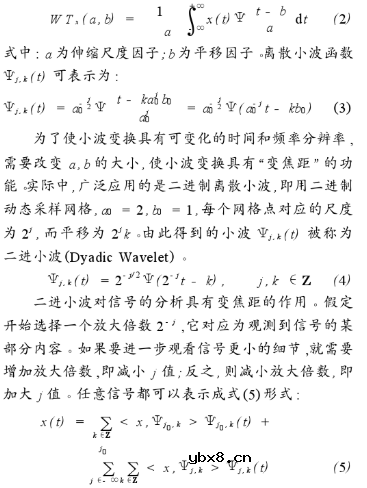 WTₓ(a,b) = 1/a ∫_{-∞}^{+∞} x(t)Ψ (t-b)/a dt (2)
式中：a为伸缩尺度因子；b为平移因子。离散小波函数
Ψj,k(t) 可表示为：
Ψj,k(t) = a0^{-j/2} Ψ (t - ka0^j b0)/a0^j = a0^{-j/2} Ψ(a0^{-j}t - kb0) (3)
为了使小波变换具有可变化的时间和频率分辨率，
需要改变 a,b 的大小，使小波变换具有“变焦距”的功
能。实际中，广泛应用的是二进制离散小波，即用二进制
动态采样网格，a0 = 2，b0 = 1，每个网格点对应的尺度
为 2^j，而平移为 2^j k。由此得到的小波 Ψj,k(t) 被称为
二进小波(Dyadic Wavelet)。
Ψj,k(t) = 2^{-j/2} Ψ(2^{-j}t - k), j,k ∈ Z (4)
二进小波对信号的分析具有变焦距的作用。假定
开始选择一个放大倍数 2^{-j}，它对应为观测到信号的某
部分内容。如果要进一步观看信号更小的细节，就需要
增加放大倍数，即减小 j 值；反之，则减小放大倍数，即
加大 j 值。任意信号都可以表示成式(5)形式：
x(t) = ∑_{k∈Z} < x,Ψj0,k > Ψj0,k(t) +
∑_{j=-∞}^{j0} ∑_{k∈Z} < x,Ψj,k > Ψj,k(t) (5)
ybx8.cn